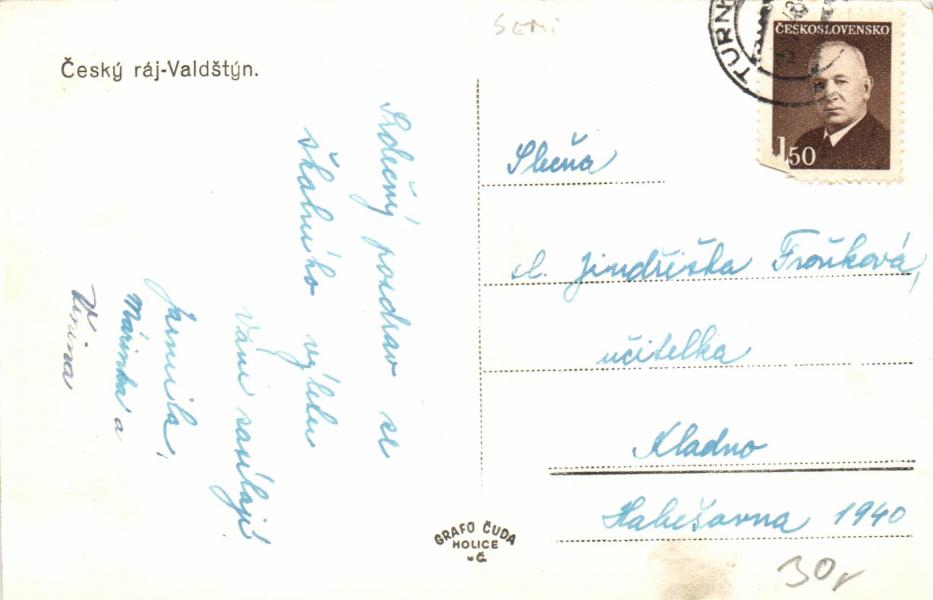 Český ráj-Valdštýn.
Srdečný pozdrav se
skalního výletu
Vám zasílají
Jarmila,
Mařinka a
SEMI
TURN
ČESKOSLOVENSKO
1,50
Slečna
sl. Jindřiška Froňková,
učitelka
Kladno
Habešovna 1940
GRAFO ČUDA
HOLICE
v Č.
30,-